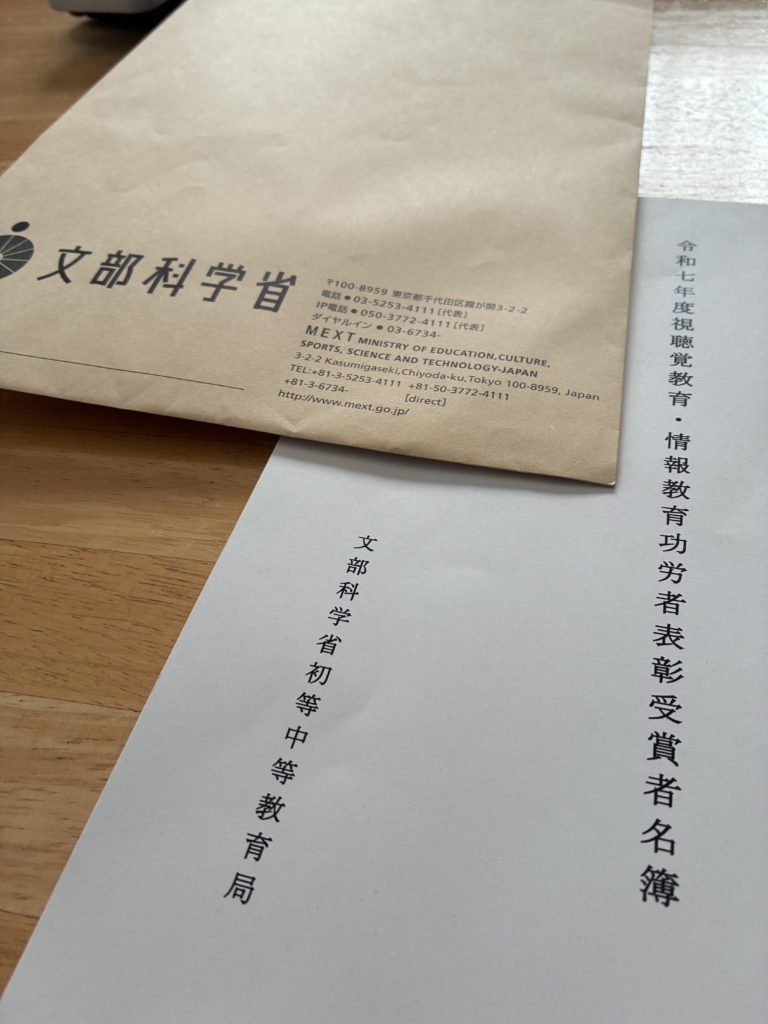 文部科学省
〒100-8959 東京都千代田区霞が関3-2-2
電話●03-5253-4111[代表]
IP電話●050-3772-4111[代表]
ダイヤルイン●03-6734-
MEXT MINISTRY OF EDUCATION,CULTURE,
SPORTS, SCIENCE AND TECHNOLOGY-JAPAN
3-2-2 Kasumigaseki,Chiyoda-ku,Tokyo 100-8959, Japan
TEL:+81-3-5253-4111 +81-50-3772-4111
+81-3-6734- [direct]
http://www.mext.go.jp/
令和七年度視聴覚教育・情報教育功労者表彰受賞者名簿
文部科学省初等中等教育局